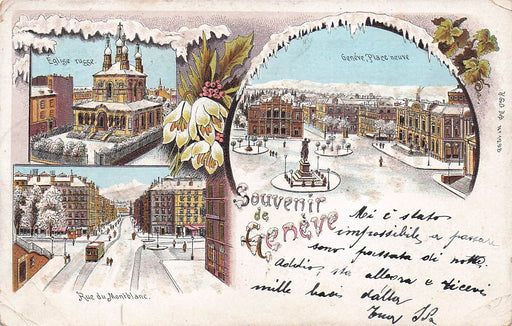 Eglise russe.
Genève, Place neuve
Souvenir
de
Genève
Rue du Montblanc.
Mi è stato
impossibile
sono passata di notte
addio, sta allegra e ricevi
mille baci dalla
tua